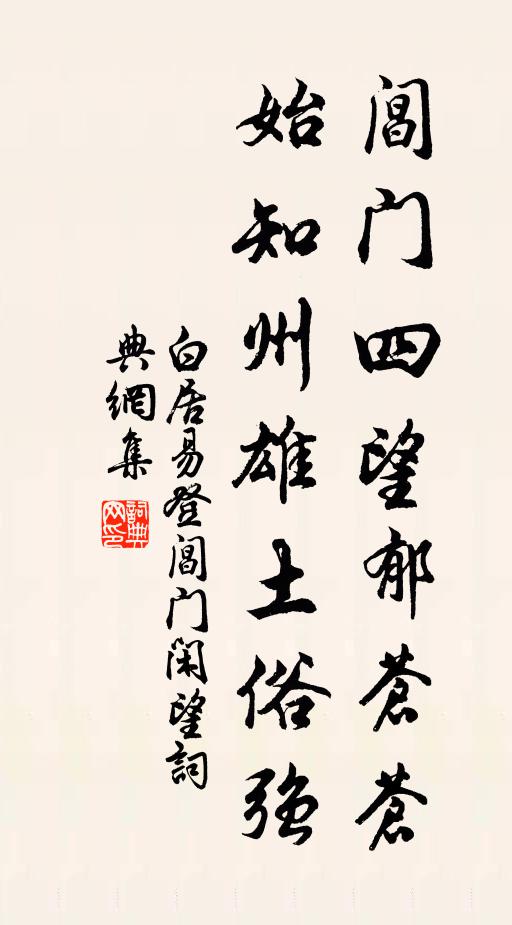 阊门四望郁苍苍
始知州雄土俗强
白居易登阊门闲望詞
典網集
詞典网印